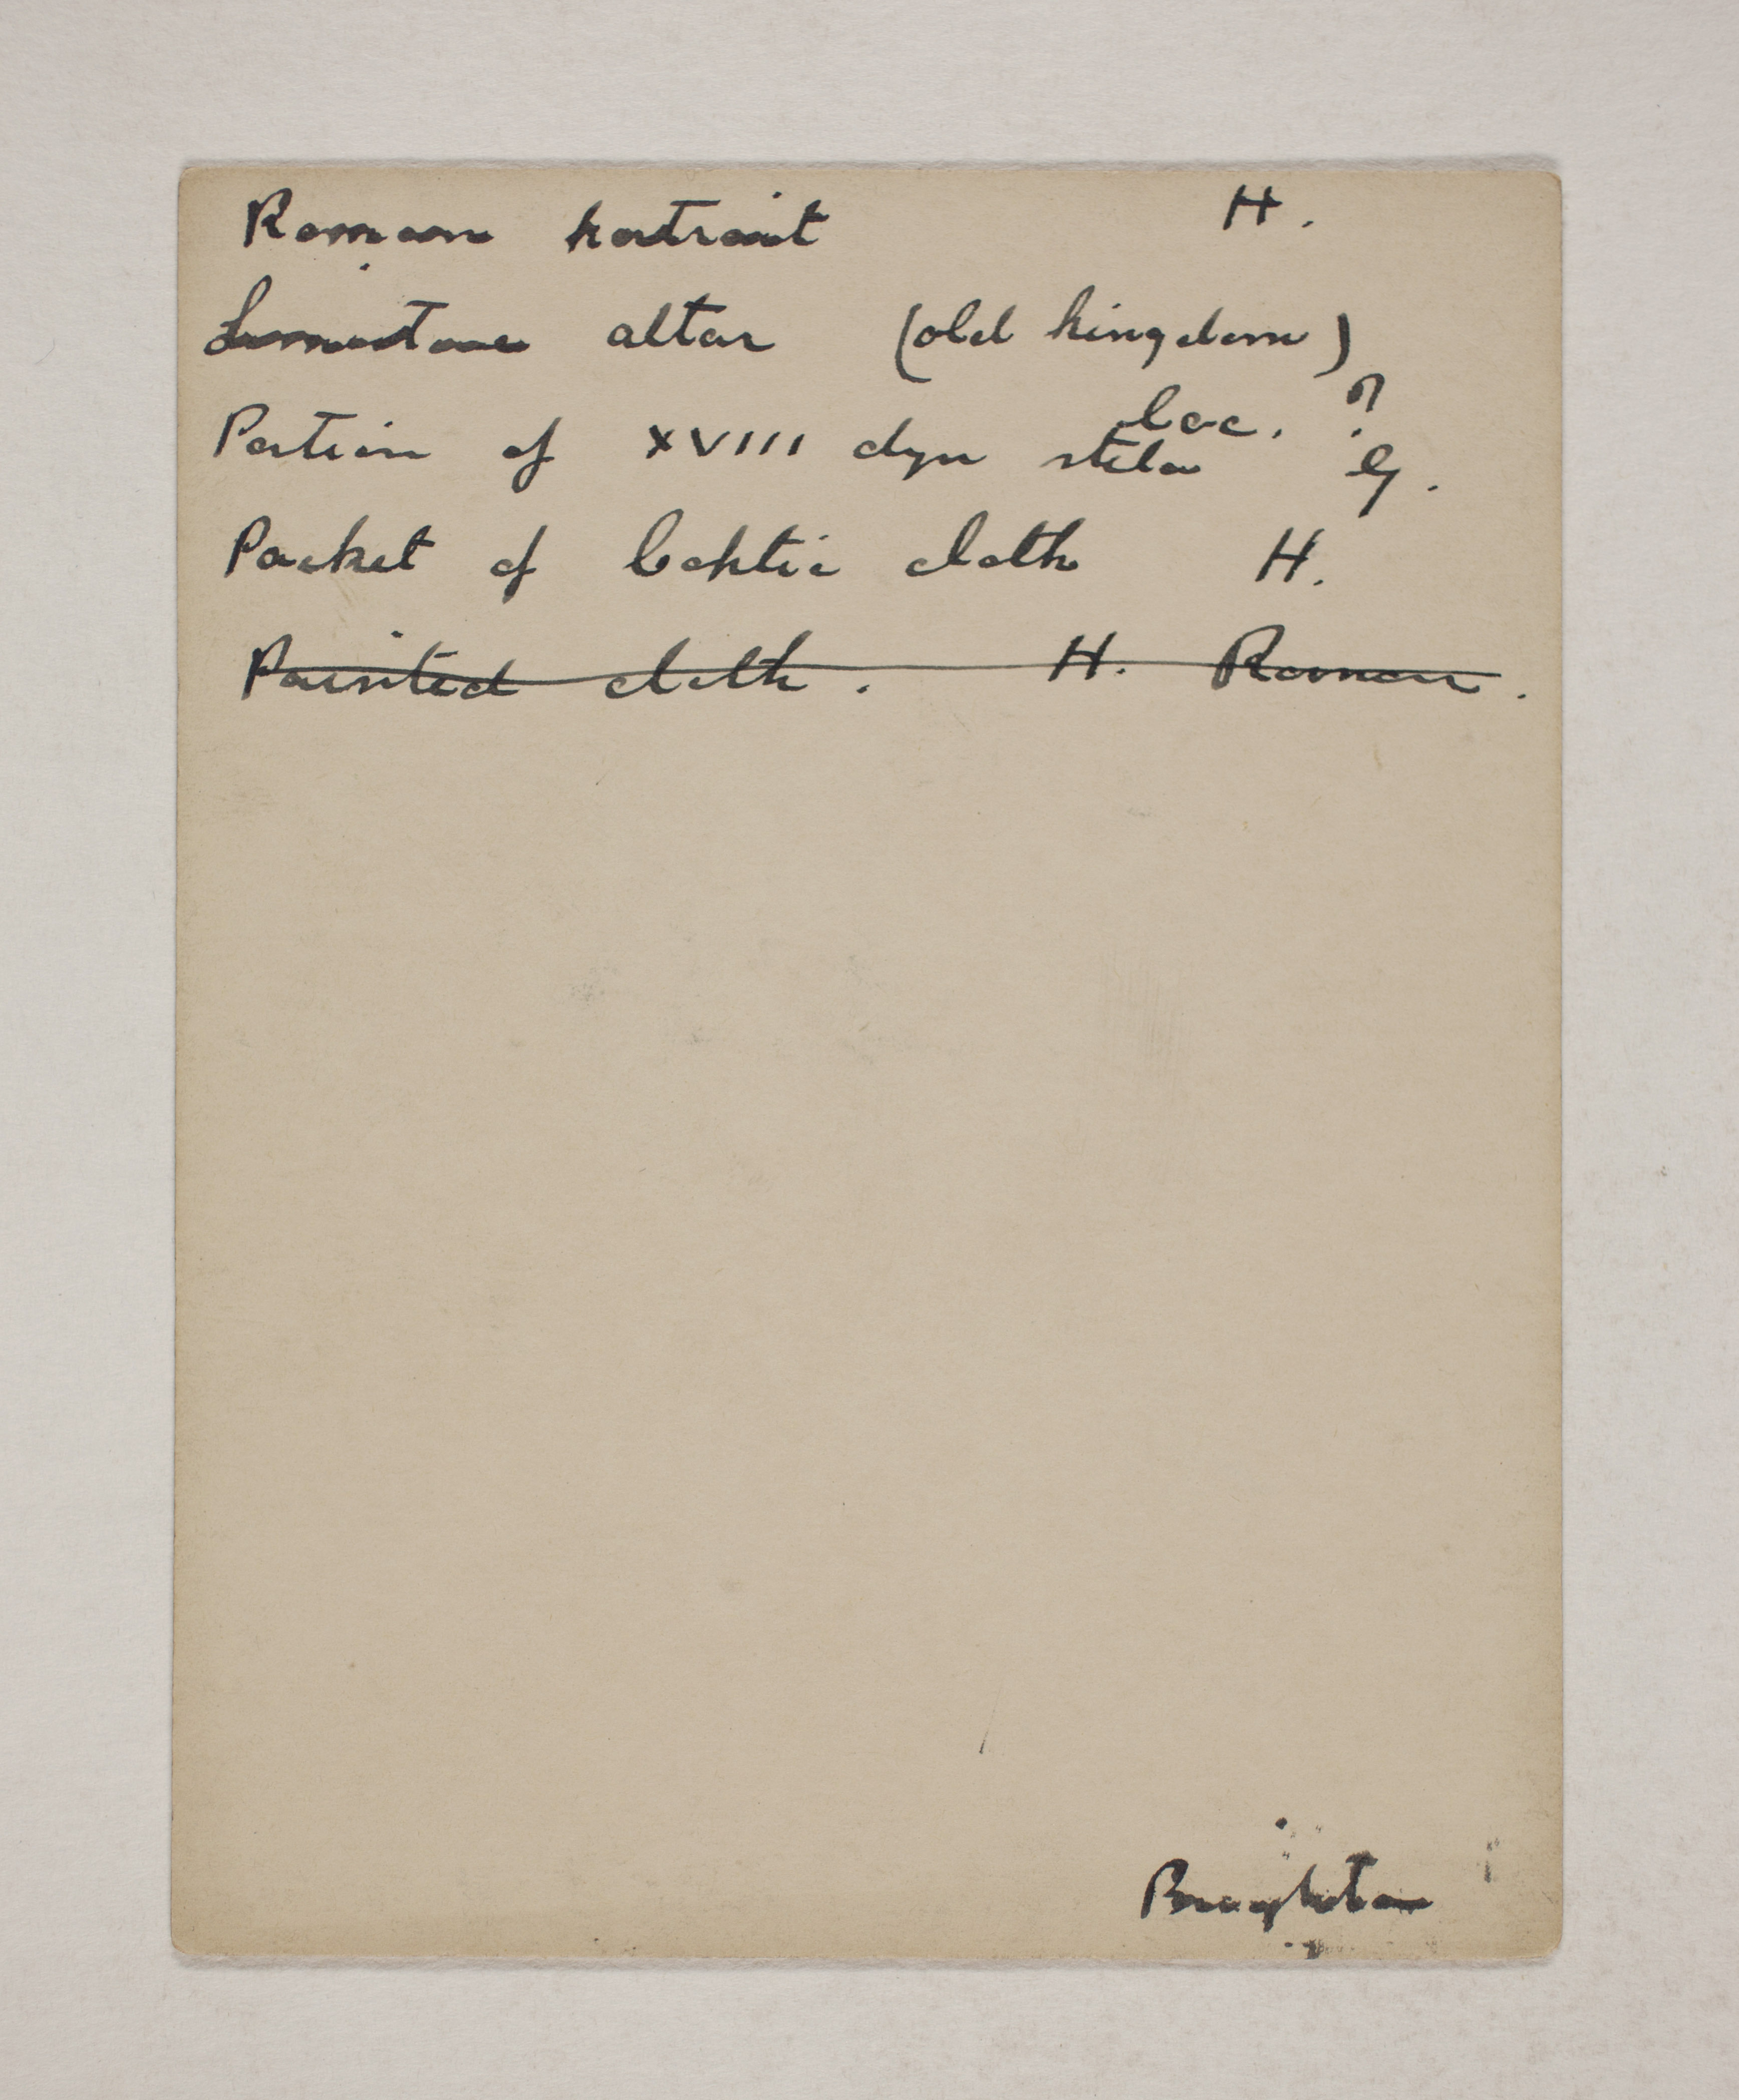 Roman portrait H.
Limestone altar (old kingdom)
loc. ?
Portion of XVIII dyn stela G.
Packet of Coptic cloth H.
Painted cloth. H. Roman.
Brighton